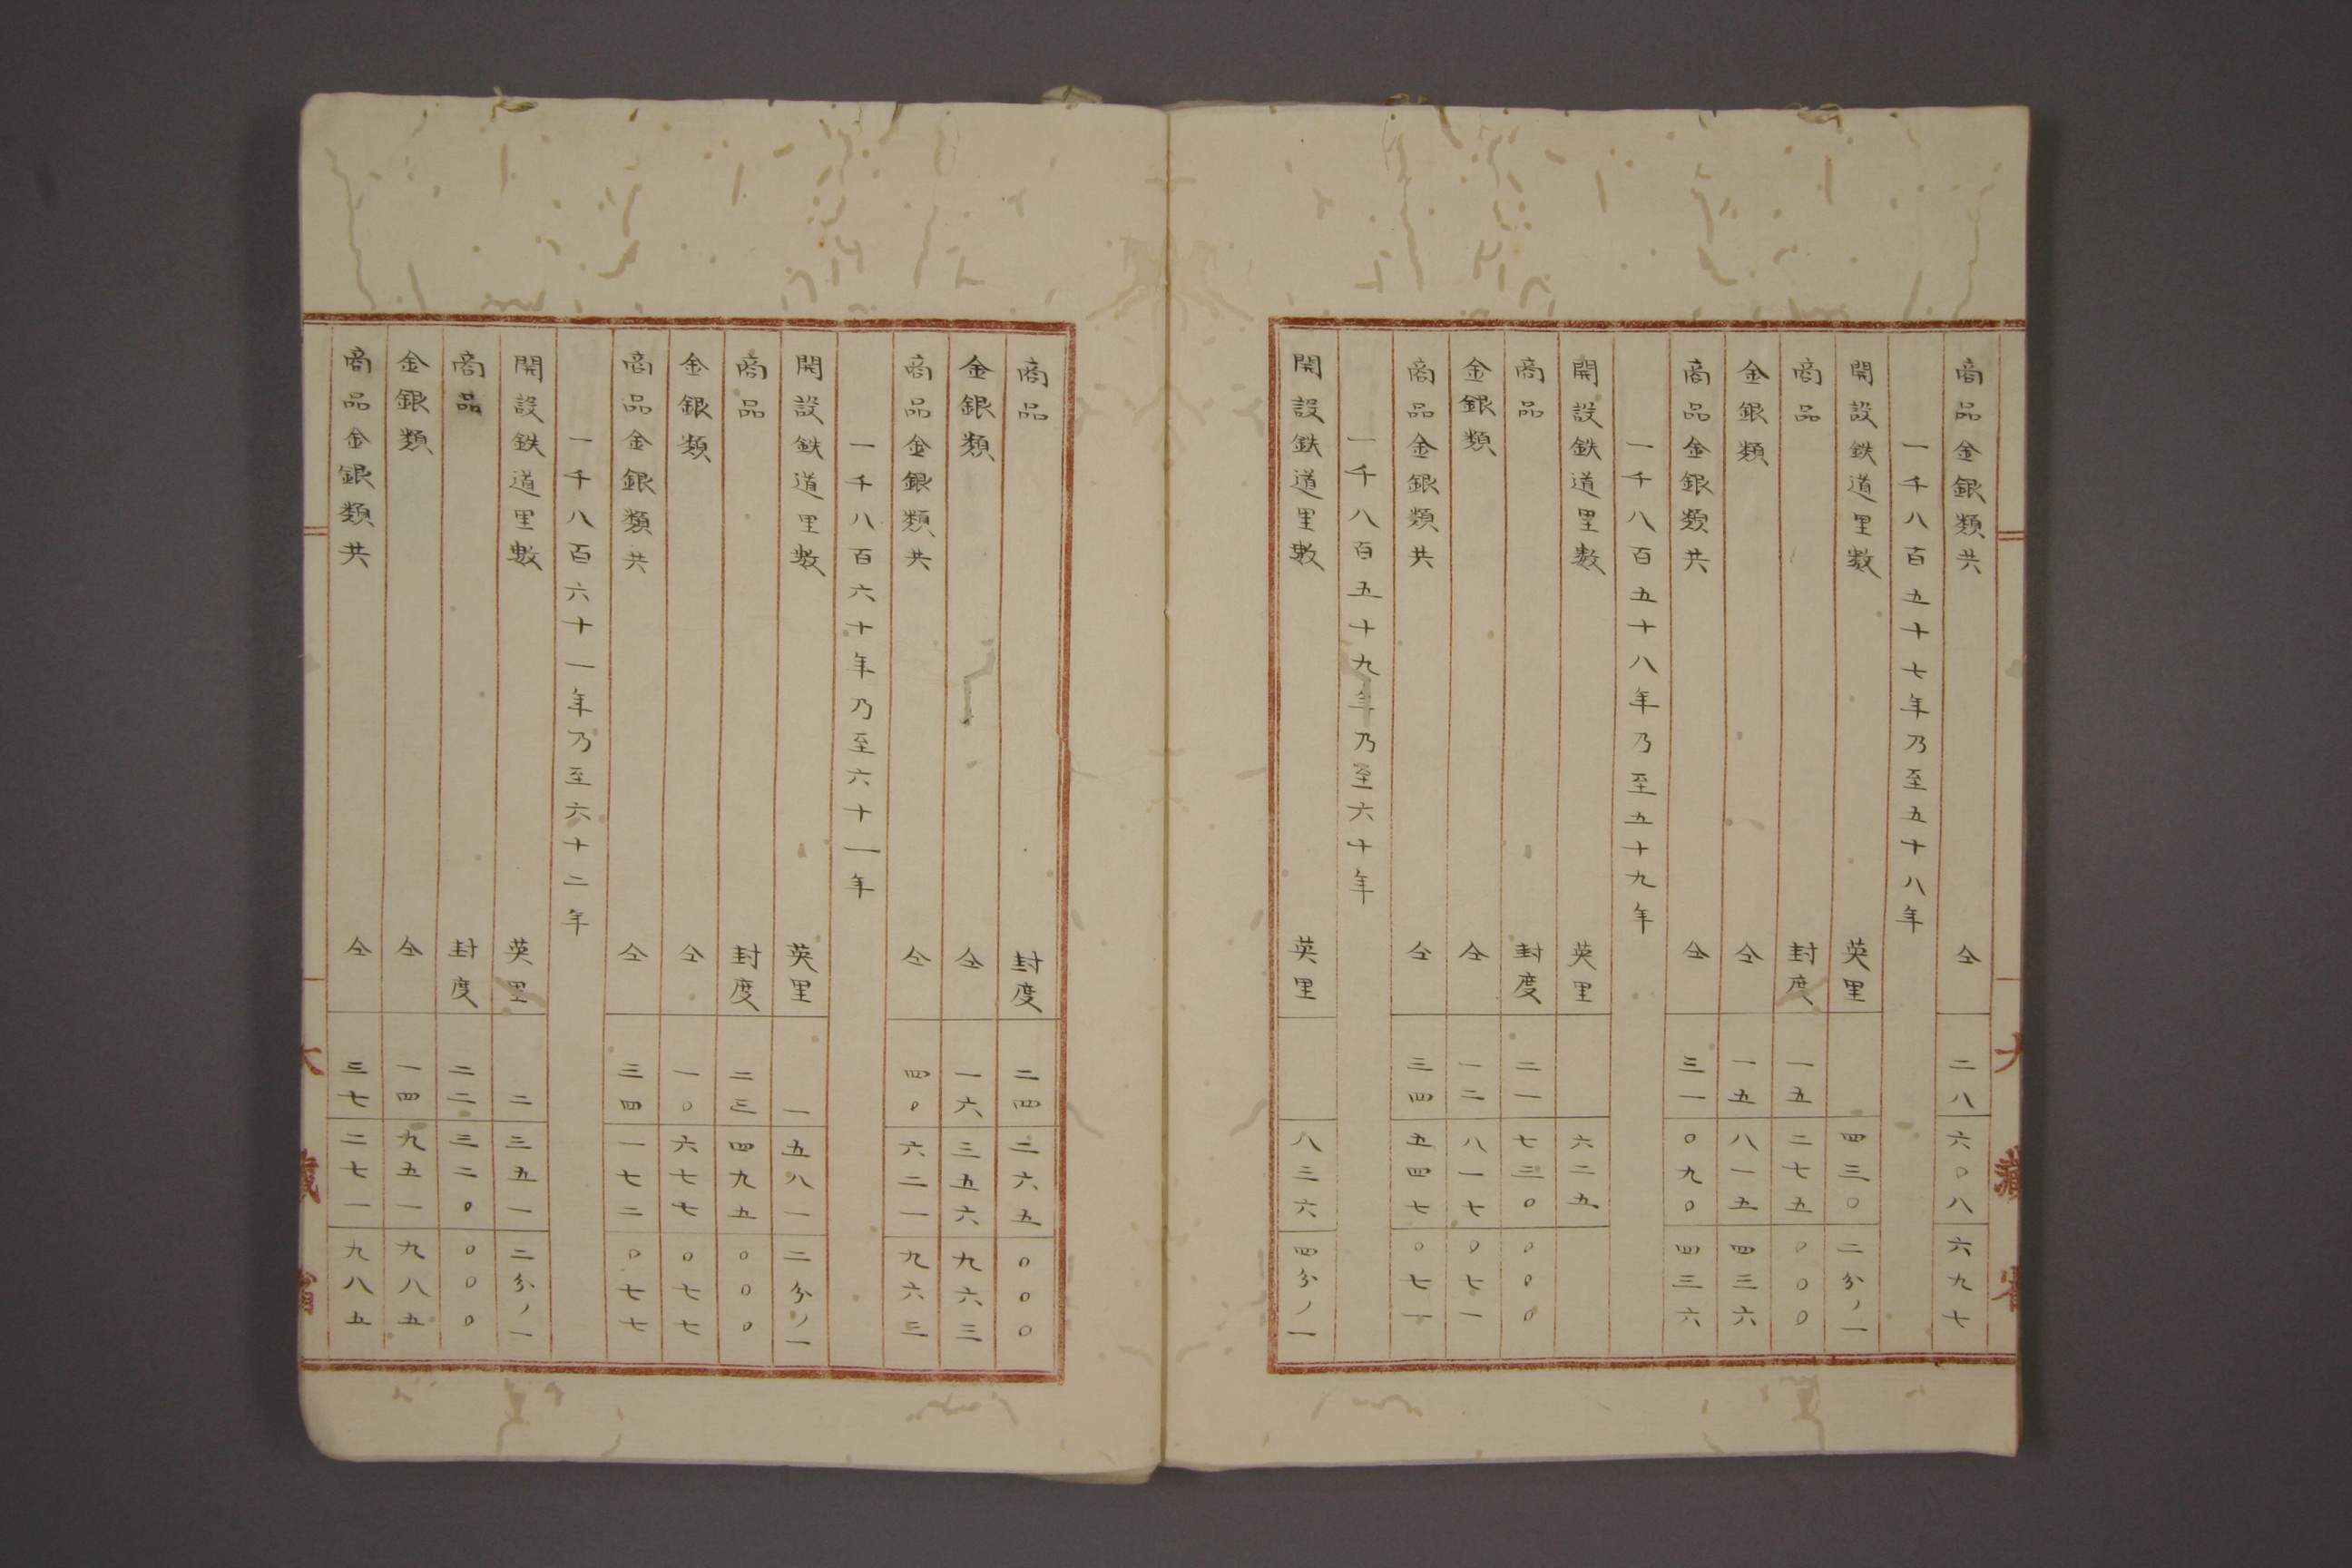 商品金銀類共 仝 二八六〇八六九七
一千八百五十七年乃至五十八年
開設鉄道里数 英里 四三〇二分ノ一
商品 封度 一五二七五〇〇〇
金銀類 仝 一五八一五四三六
商品金銀類共 仝 三一〇九〇四三六
一千八百五十八年乃至五十九年
開設鉄道里数 英里 六二五
商品 封度 二一七三〇〇〇〇
金銀類 仝 一二八一七〇七一
商品金銀類共 仝 三四五四七〇七一
一千八百五十九年乃至六十年
開設鉄道里数 英里 八三六四分ノ一
商品 封度 二四二六五〇〇〇
金銀類 仝 一六三五六九六三
商品金銀類共 仝 四〇六二一九六三
一千八百六十年乃至六十一年
開設鉄道里数 英里 一五八一二分ノ一
商品 封度 二三四九五〇〇〇
金銀類 仝 一〇六七七〇七七
商品金銀類共 仝 三四一七二〇七七
一千八百六十一年乃至六十二年
開設鉄道里数 英里 二三五一二分ノ一
商品 封度 二二三二〇〇〇〇
金銀類 仝 一四九五一九八五
商品金銀類共 仝 三七二七一九八五
大藏省